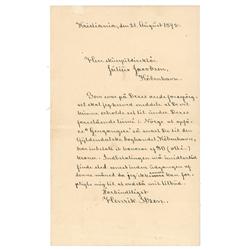 Kristiania, den 21. August 1892.
Herr skuespildirektør
Julius Jacobsen,
København.
Som svar på Deres ærede forespørgsel
skal jeg herved meddele at De vil
kunne erholde ret til under Deres
forestående turné i Norge at opføre
"Gengangere" så snart De til den
Gyldendalske boghandel, København,
har indbetalt et honorar af 80 (otti)
kroner. Indbetalingen må imidlertid
finde sted inden udgangen af
denne måned da jeg
mig til at endeholde mit tilbud.
Forbindtligst
Henrik Ibsen.